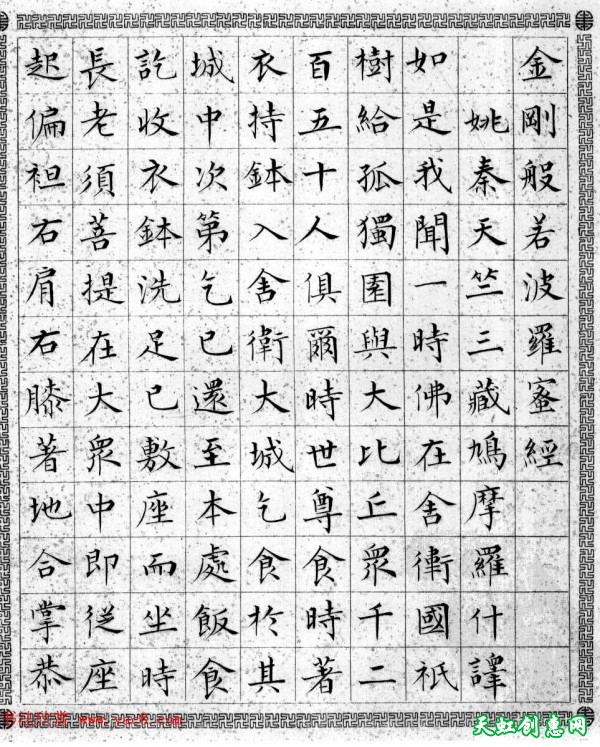 金剛般若波羅蜜經
姚秦天竺三藏鳩摩羅什譯
如是我聞一時佛在舍衛國祇
樹給孤獨園與大比丘衆千二
百五十人俱爾時世尊食時著
衣持鉢入舍衛大城乞食於其
城中次第乞已還至本處飯食
訖收衣鉢洗足已敷座而坐時
長老須菩提在大衆中即從座
起偏袒右肩右膝著地合掌恭
天虹创意网